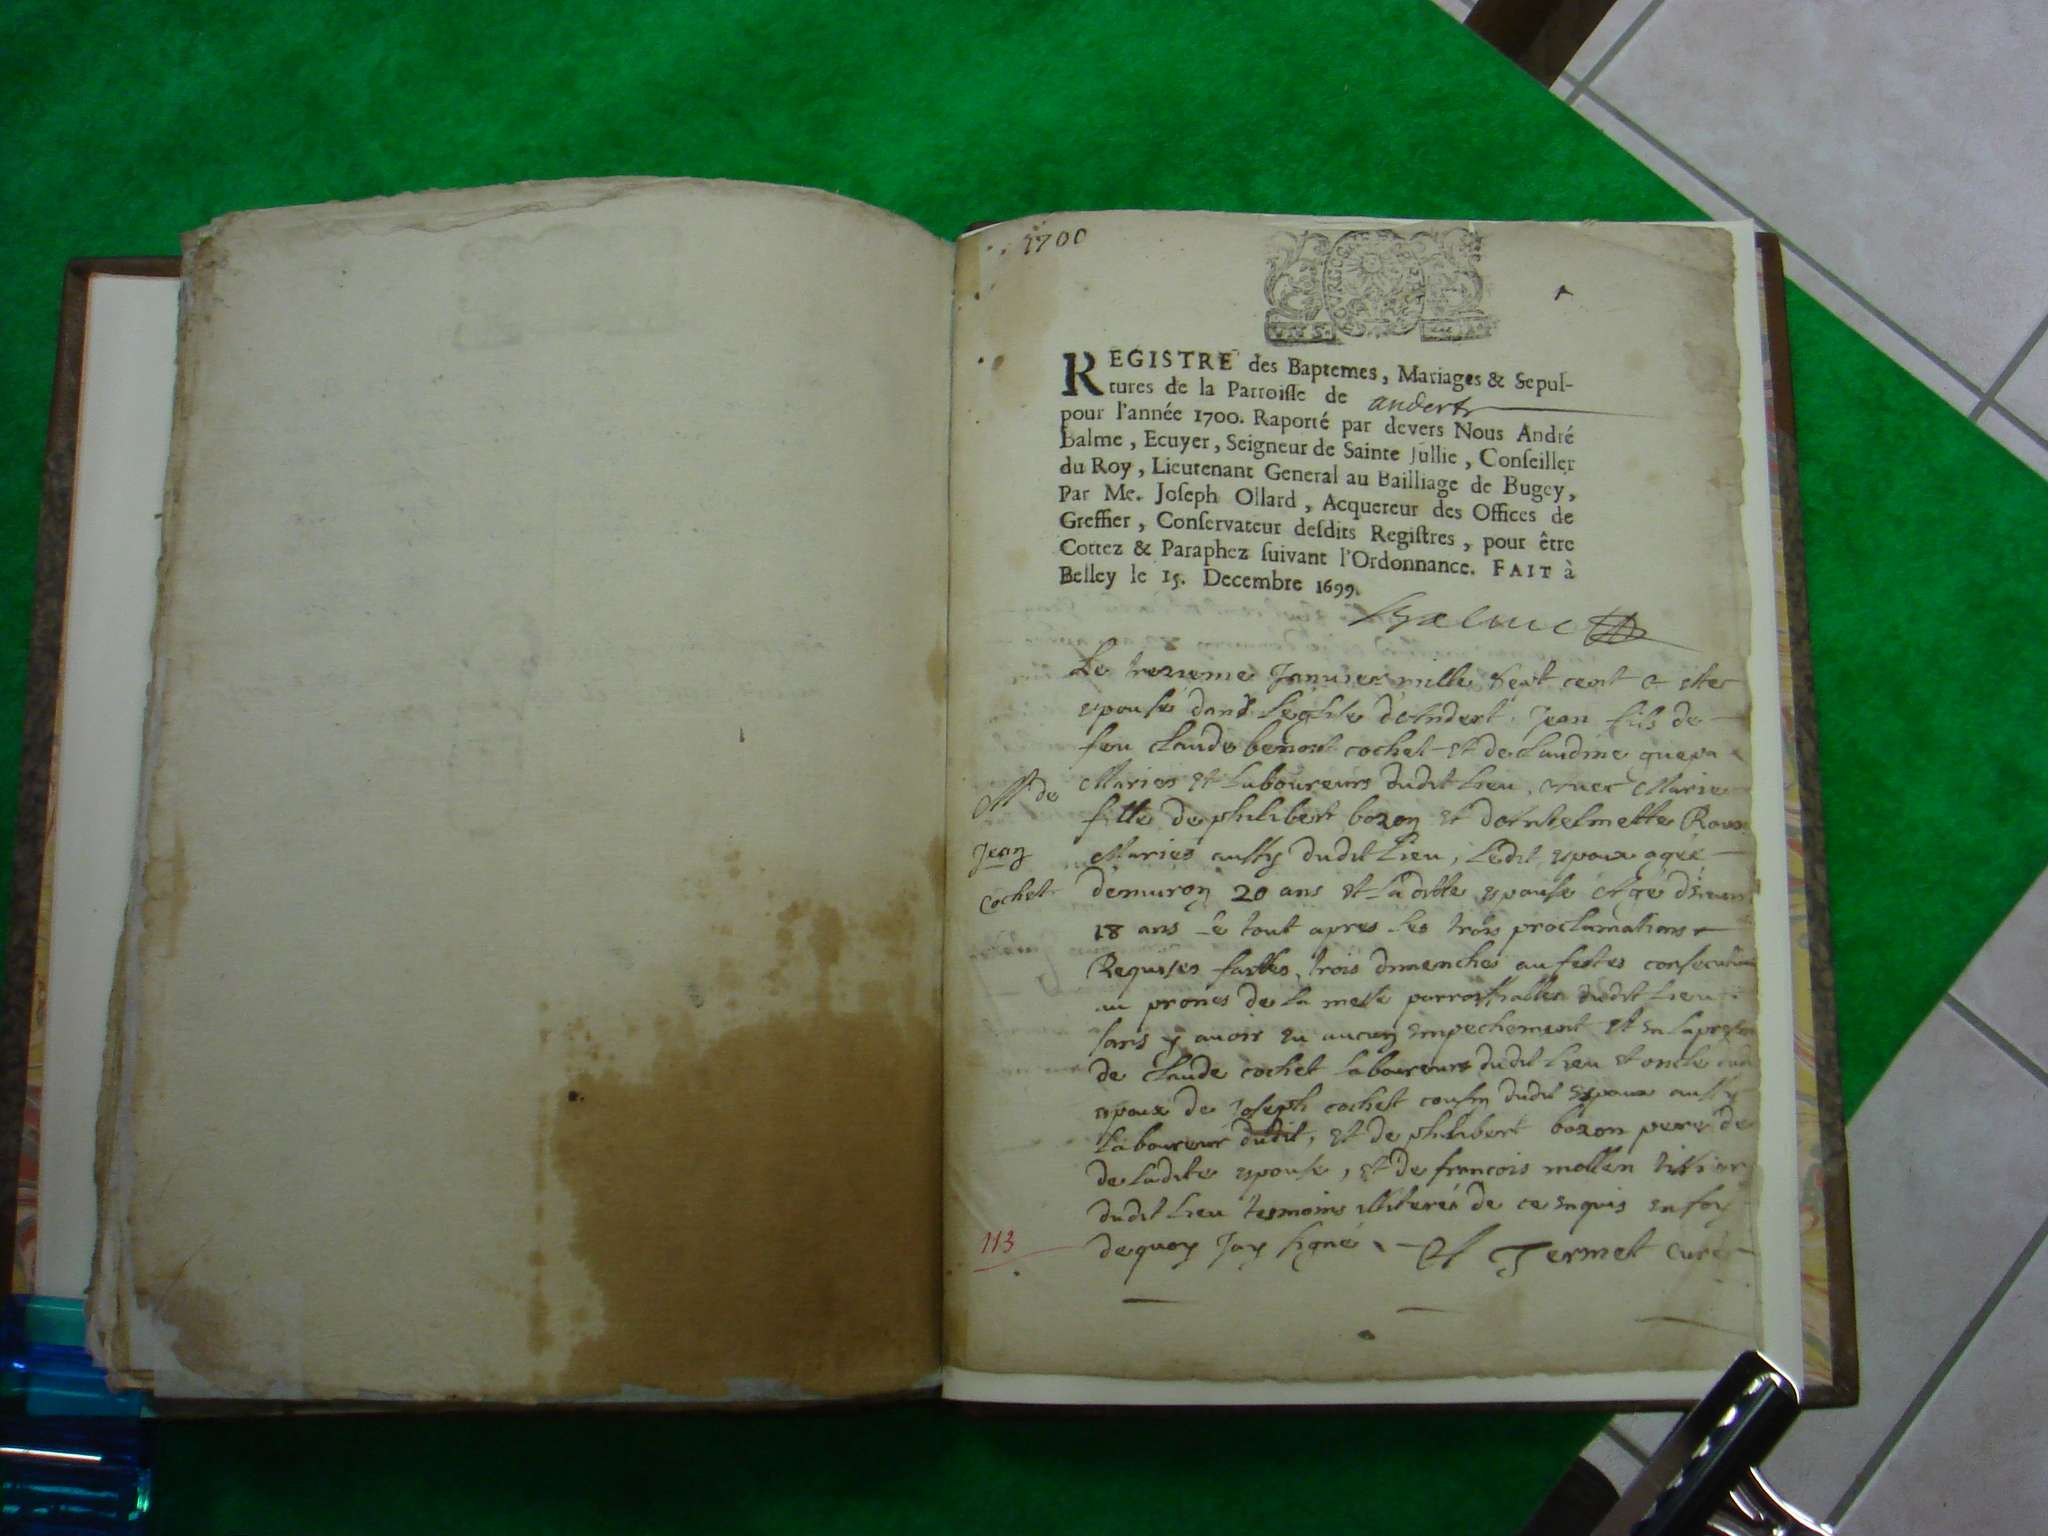 1700
REGISTRE des Baptemes, Mariages & Sepul-
tures de la Parroisse de andert
pour l'année 1700. Raporté par devers Nous André
Balme, Ecuyer, Seigneur de Sainte Jullie, Conseiller
du Roy, Lieutenant General au Bailliage de Bugey,
Par Me. Joseph Ollard, Acquereur des Offices de
Greffier, Conservateur desdits Registres, pour être
Cottez & Paraphez suivant l'Ordonnance. FAIT à
Belley le 15. Decembre 1699.
Balme
Le trezieme Janvier mille sept cent a ette
espousé dans l'eglise d'Andert, Jean fils de
feu Claude benoit cochet et de Claudine
Maries et laboureurs dudit lieu, avec Marie
fille de philibert bozon et d'Anthelmette
Mariés aussy dudit lieu, ledit espoux agée
demuron 20 ans et la ditte espouse Agé
18 ans le tout apres les trois proclamations
Requises faittes trois dimenches ou festes
au prones de la messe parroissialle dudit lieu
sans y avoir eu aucun empechement et en la
de Claude cochet laboureurs dudit lieu et oncle
espoux de Joseph cochet cousin dudit espoux aussy
laboureur dudit, et de philibert bozon pere de
de ladite espouse, et de francois mollen
dudit lieu tesmoins illiterés de ce enquis en foy
de quoy Jay signé Termet curé
M de
Jean
Cochet
113